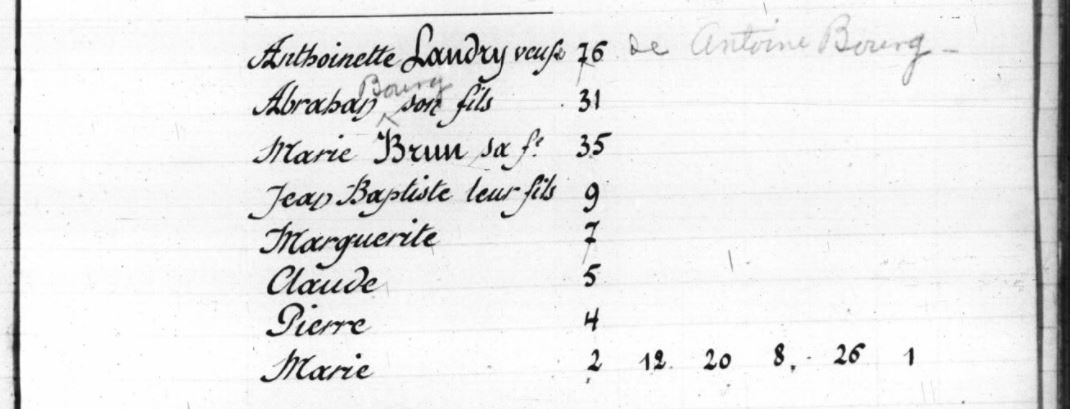 Anthoinette Landry veufe 76 de Antoine Bourg -
Bourg
Abrahan son fils 31
Marie Brun sa fe 35
Jean Baptiste leur fils 9
Marguerite 7
Claude 5
Pierre 4
Marie 2 12 20 8 26 1